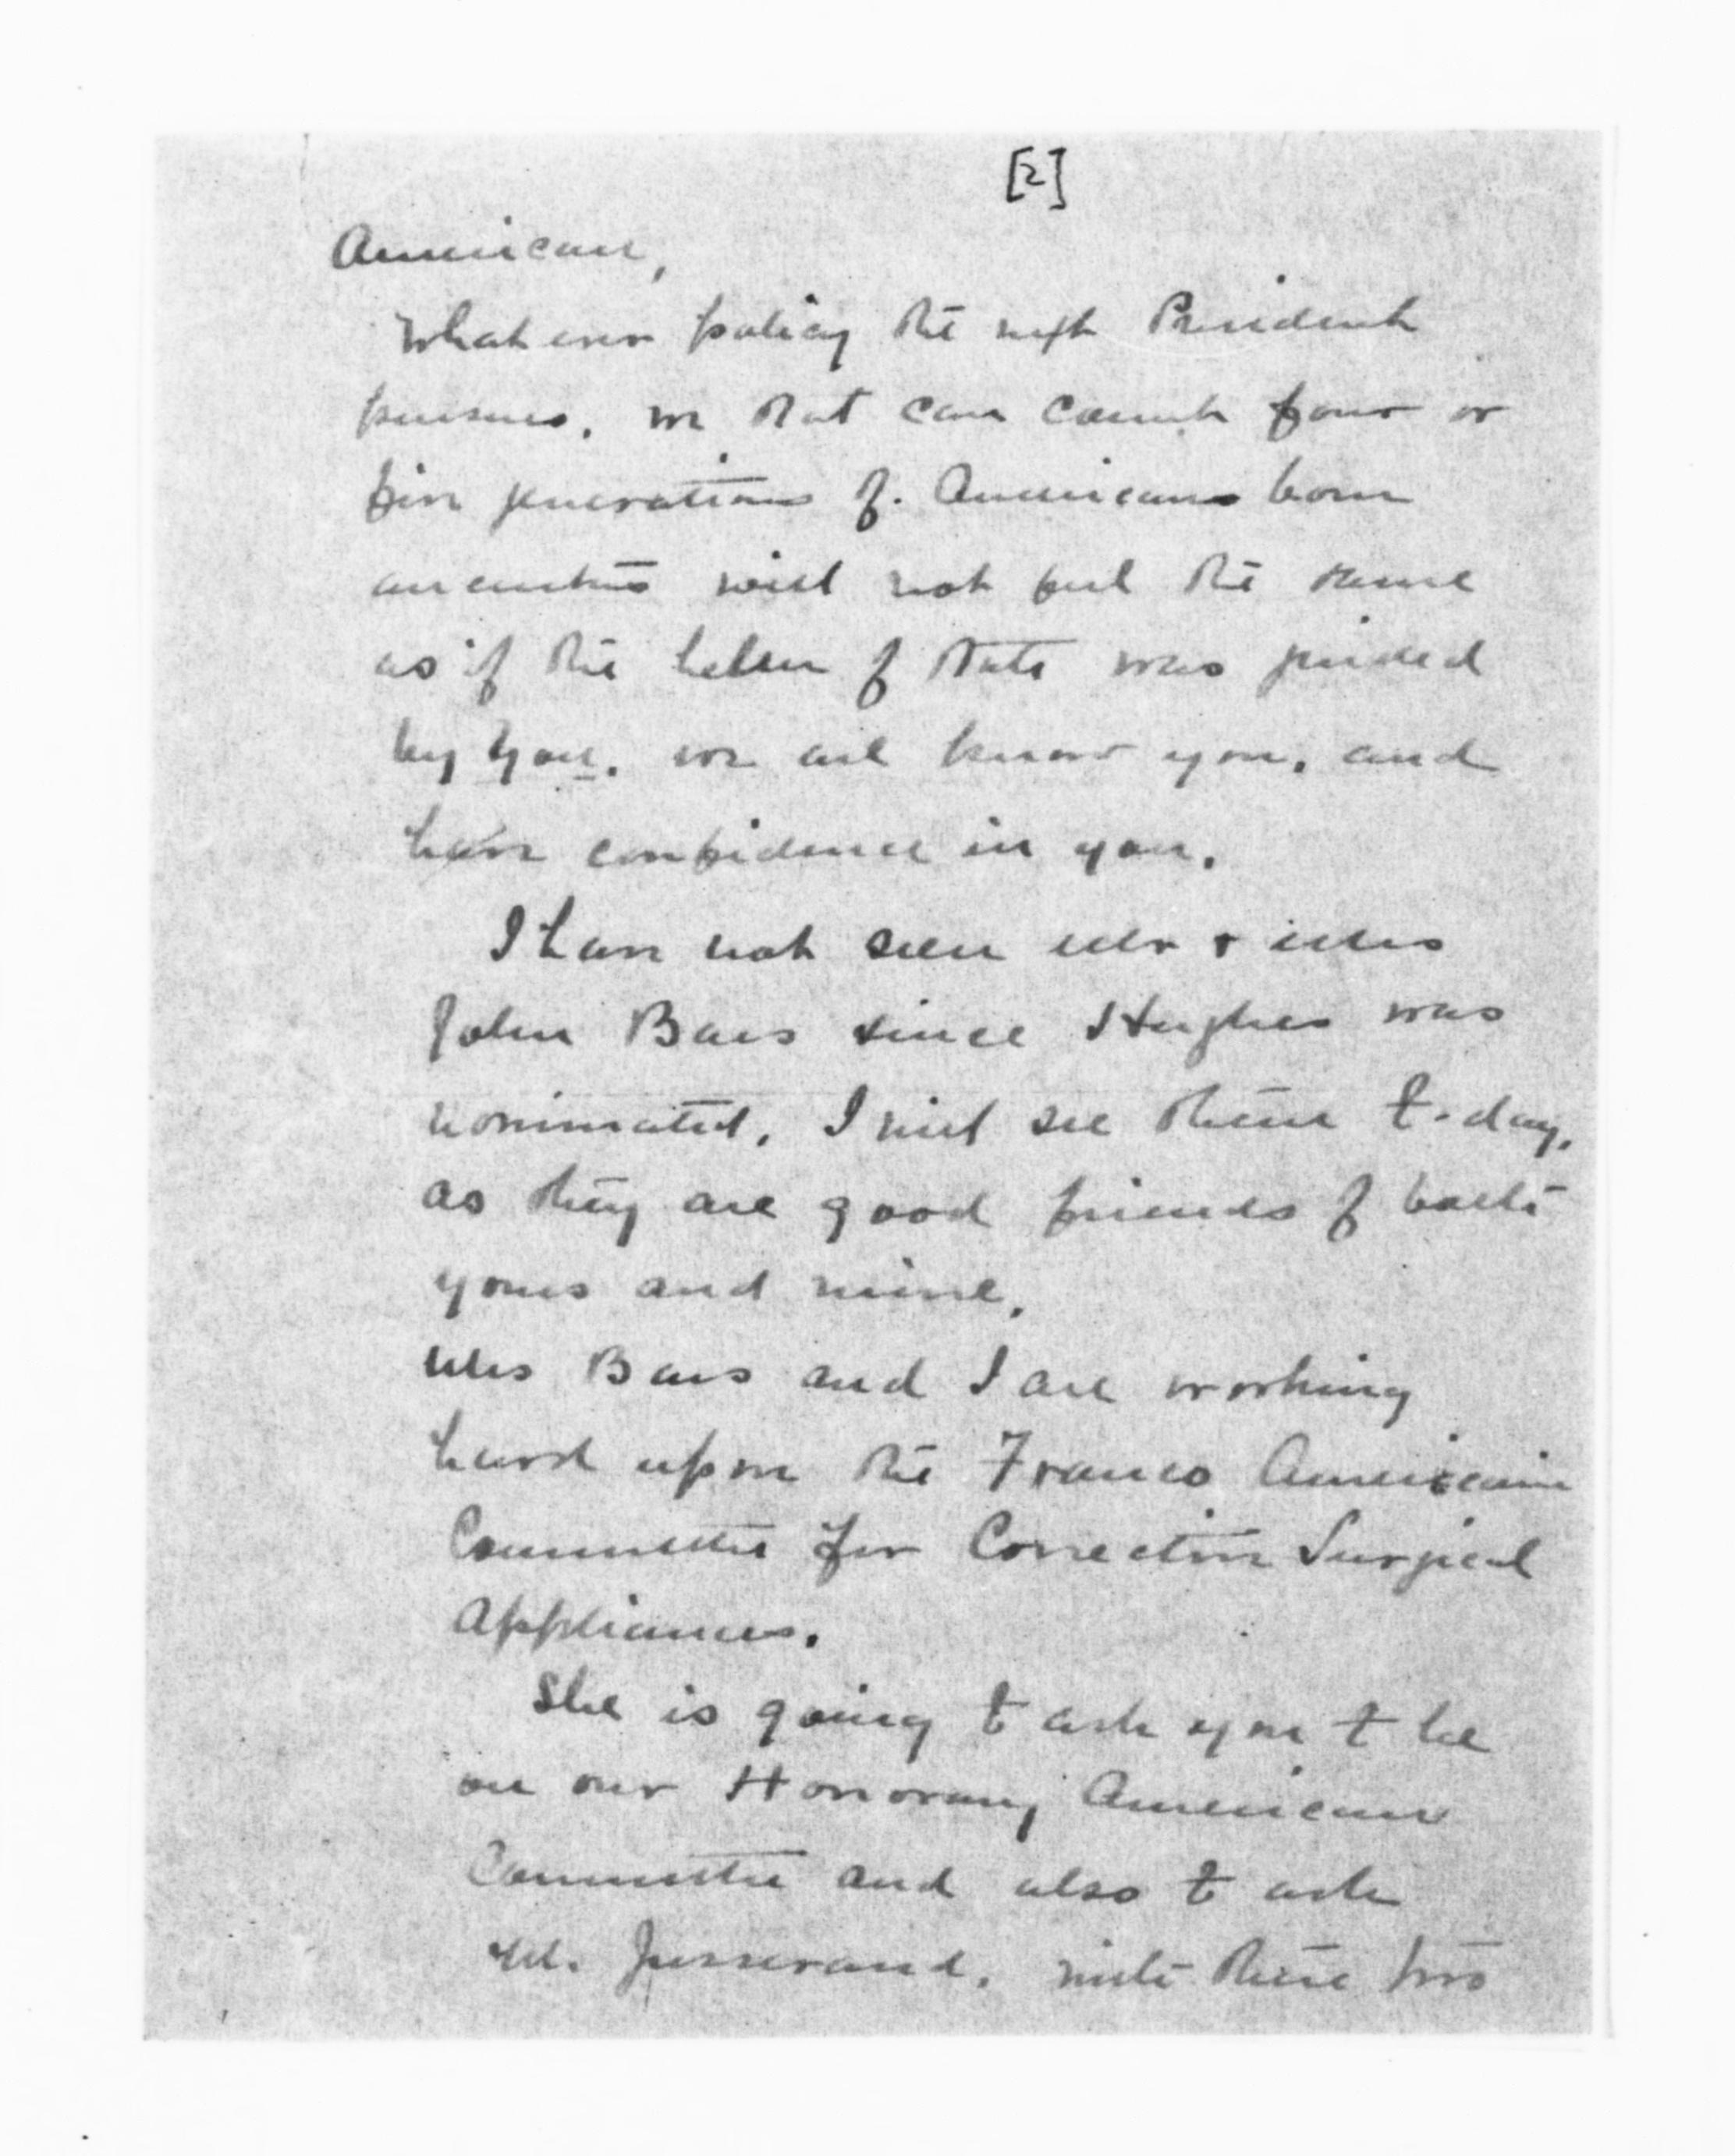 [2]
American,
Whatever policy the next President
pursues, we that can count four or
five generations of Americans born
ancestors will not feel the same
as if the helm of State was guided
by you. we all know you, and
have confidence in you.
I have not seen Mr & Mrs
John Bass since Hughes was
nominated. I will see them to-day,
as they are good friends of both
yours and mine.
Mrs Bass and I are working
hard upon the Franco American
Committee for Corrective Surgical
Appliances.
She is going to ask you to be
on our Honorary American
Committee and also to ask
M. Jusserand. with these two